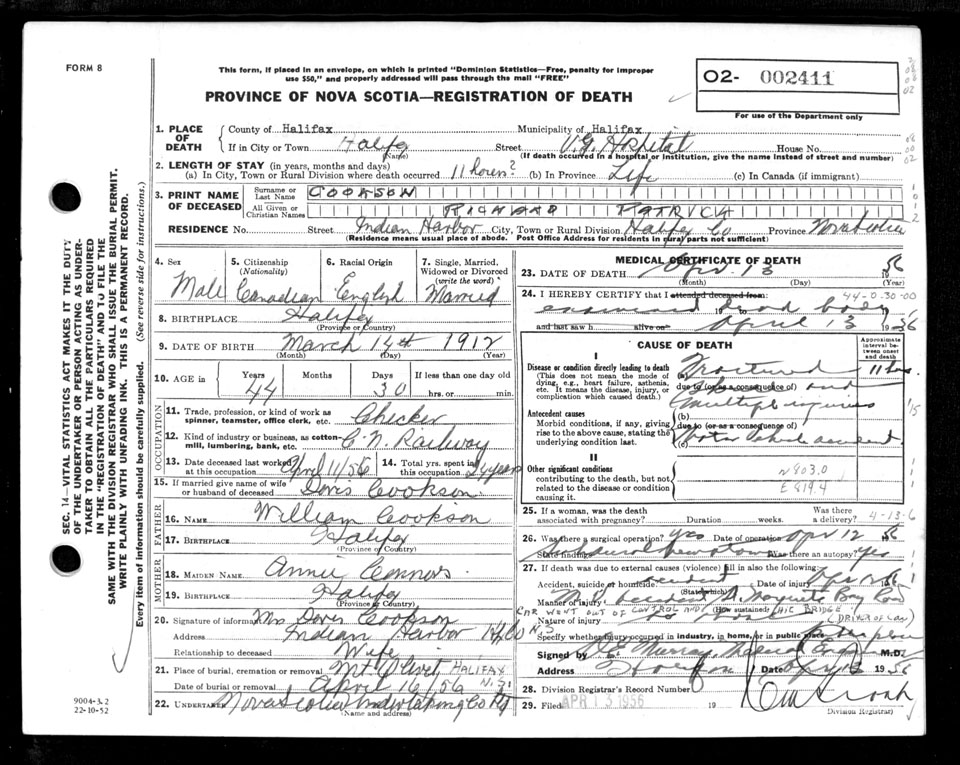 FORM 8
This form, if placed in an envelope, on which is printed "Dominion Statistics—Free, penalty for improper
use $50," and properly addressed will pass through the mail "FREE"
PROVINCE OF NOVA SCOTIA—REGISTRATION OF DEATH
02- 002411
For use of the Department only
1. PLACE OF DEATH
County of Halifax Municipality of Halifax
If in City or Town Halifax Street V.G. Hospital House No.
(Name) (If death occurred in a hospital or institution, give the name instead of street and number)
2. LENGTH OF STAY (in years, months and days)
(a) In City, Town or Rural Division where death occurred 11 hours? (b) In Province Life (c) In Canada (if immigrant)
3. PRINT NAME OF DECEASED
Surname or Last Name COOKSON
All Given or Christian Names RICHARD PATRICK
RESIDENCE No. Street Indian Harbor City, Town or Rural Division Halifax Co Province Nova Scotia
(Residence means usual place of abode. Post Office Address for residents in rural parts not sufficient)
4. Sex Male
5. Citizenship (Nationality) Canadian
6. Racial Origin English
7. Single, Married, Widowed or Divorced (write the word) Married
8. BIRTHPLACE Halifax
(Province or Country)
9. DATE OF BIRTH March 14th 1912
(Month) (Day) (Year)
10. AGE in Years 44 Months Days 30 If less than one day old
hrs. or min.
OCCUPATION
11. Trade, profession, or kind of work as spinner, teamster, office clerk, etc. Checker
12. Kind of industry or business, as cotton-mill, lumbering, bank, etc. C.N. Railway
13. Date deceased last worked at this occupation April 11/56
14. Total yrs. spent in this occupation years
15. If married give name of wife or husband of deceased Doris Cookson
FATHER
16. NAME William Cookson
17. BIRTHPLACE Halifax
(Province or Country)
MOTHER
18. MAIDEN NAME Annie Connors
19. BIRTHPLACE Halifax
(Province or Country)
20. Signature of informant Mrs Doris Cookson
Address Indian Harbor Hfx Co N.S
Relationship to deceased Wife
21. Place of burial, cremation or removal Mt. Olivet HALIFAX N.S.
Date of burial or removal April 16/56
22. UNDERTAKER Nova Scotia Undertaking Co
(Name and address)
MEDICAL CERTIFICATE OF DEATH
23. DATE OF DEATH Apr. 13 1956
(Month) (Day) (Year)
24. I HEREBY CERTIFY that I attended deceased from: 44-0-30-00
examined dead body
and last saw h alive on April 13 1956
CAUSE OF DEATH
Approximate interval between onset and death
I
Disease or condition directly leading to death
(This does not mean the mode of dying, e.g., heart failure, asthenia, etc. It means the disease, injury, or complication which caused death.)
Fractured 11 hrs.
due to (or as a consequence of) and
multiple injuries
Antecedent causes
Morbid conditions, if any, giving rise to the above cause, stating the underlying condition last.
(b)
due to (or as a consequence of)
motor vehicle accident
II
Other significant conditions
contributing to the death, but not related to the disease or condition causing it.
N803.0
E819.4
25. If a woman, was the death associated with pregnancy? Duration weeks. Was there a delivery? 4-13-6
26. Was there a surgical operation? yes Date of operation Apr 12 56
State findings Was there an autopsy? yes
27. If death was due to external causes (violence) fill in also the following:
Accident, suicide or homicide accident Date of injury Apr 12 56
(State which)
Manner of injury M.V. accident St. Margarets Bay Road
CAR WENT OUT OF CONTROL AND (How sustained) BRIDGE
Nature of injury (DRIVER OF CAR)
Specify whether injury occurred in industry, in home, or in public place
Signed by Murray, Medical M.D.
Address Halifax Date Apr 13 1956
28. Division Registrar's Record Number
29. Filed APR 13 1956 19
Division Registrar)
SEC. 14—VITAL STATISTICS ACT MAKES IT THE DUTY
OF THE UNDERTAKER OR PERSON ACTING AS UNDER-
TAKER TO OBTAIN ALL THE PARTICULARS REQUIRED
IN THE "REGISTRATION OF DEATH" AND TO FILE THE
SAME WITH THE DIVISION REGISTRAR WHO SHALL ISSUE THE BURIAL PERMIT.
WRITE PLAINLY WITH UNFADING INK. THIS IS A PERMANENT RECORD.
Every item of information should be carefully supplied. (See reverse side for instructions.)
9004-3.2
22-10-52